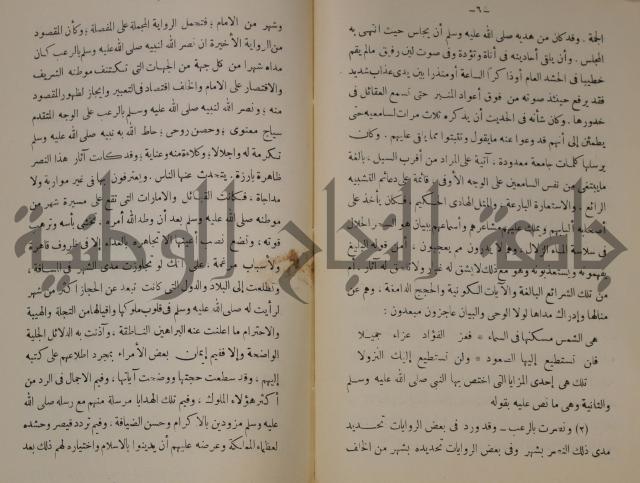 - ٦ -
الجمة . وقد كان من هديه صلى الله عليه وسلم أن يجلس حيث انتهى به
المجلس . وأن يلقى أحاديثه فى أناة وتؤدة وفى صوت لين رفيق مالم يقم
خطيبا فى الحشد العام أوذا كرا الساعة أو منذرا بين يدى عذاب شديد
فقد يرفع حينئذ صوته من فوق أعواد المنبر حتى تسمع العقائل فى
خدورها . وكان شأنه فى الحديث أن يذكره ثلاث مرات لسامعيه حتى
يطمئن إلى أنهم قد وعوا عنه مايقول وتثبتوا مما يلقى عليهم . وكان
يرسلها كلمات جامعة معدودة ، آتية على المراد من أقرب السبل ، بالغة
ماينبغى من نفس السامعين على الوجه الأوفى ، قائمة على دعائم التشبيه
الرائع ، والاستعارة البارعة ، والمثل الهادى الحكيم ، فكان يأخذ على
أصحابه ألبابهم ويملك عليهم مشاعرهم وأسماعهم ببيان هو السحر الحلال
فى سلاسة الماء الزلال . وهم لا يدرون مم يعجبون ، أمن قوله البليغ
يفهمونه ويستعذبونه وهو مع ذلك لا يشق له غبار ولا
من تلك الشرائع البالغة والآيات الكونية والحجج الدامغة ، وهم عن
منالها وإدراك مداها لولا الوحى والبيان عاجزون مبعدون :
هى الشمس مسكنها فى السماء * فعز الفؤاد عزاء جميلا
فلن تستطيع إليها الصعود * ولن تستطيع إليك النزولا
تلك هى إحدى المزايا التى اختص بها النبى صلى الله عليه وسلم
والثانية وهى ما نص عليه بقوله
(٢) ونصرت بالرعب - وقد ورد فى بعض الروايات تحديد
مدى ذلك النصر بشهر وفى بعض الروايات تحديده بشهر من الخلف
وشهر من الامام ؛ فتحمل الرواية المجملة على المفصلة ؛ وكأن المقصود
من الرواية الأخيرة ان نصر الله لنبيه صلى الله عليه وسلم بالرعب كان
مداه شهرا من كل جهة من الجهات التى تكتنف موطنه الشريف
والاقتصار على الامام والخلف اقتصاد فى التعبير وإيجاز لظهور المقصود
منه ؛ ونصر الله لنبيه صلى الله عليه وسلم بالرعب على الوجه المتقدم
سياج معنوى ؛ وحصن روحى ؛ حاط الله به نبيه صلى الله عليه وسلم
تكرمة له واجلالا ؛ وكلاءة منه وعناية ؛ وقد كانت آثار هذا النصر
ظاهرة بارزة . يتحدث عنها الناس . ويعترفون بها فى غير مواربة ولا
مداجاة . فكانت القبائل والامارات التى تقع على مسيرة شهر من
موطنه صلى الله عليه وسلم بعد أن وطد الله أمره . تخشى بأسه وترهب
قوته ، وتضع نصب أعينها الا تجاهره بالعداء إلا فى ظروف قاهرة
ولأسباب مرغمة . على انك لو تجاوزت مدى الشهر فى المسافة ،
وتطلعت إلى البلاد والدول التى كانت تبعد عن الحجاز أكثر من شهر
لرأيت له صلى الله عليه وسلم فى قلوب ملوكها واقيالها من التجلة والهيبة
والاحترام ما اعلنت عنه البراهين الناطقة ، وآذنت به الدلائل الجلية
الواضحة وإلا ففيم إيمان بعض الأمراء بمجرد اطلاعهم على كتبه
إليهم ، وقد سطعت حجتها ووضحت آياتها ، وفيم الاجمال فى الرد من
أكثر هؤلاء الملوك ، وفيم تلك الهدايا مرسلة منهم مع رسله صلى الله
عليه وسلم مزودين بالاكرام وحسن الضيافة . وفيم تردد قيصر وحشده
لعظماء المملكة وعرضه عليهم أن يدينوا بالاسلام واختياره لهم ذلك بعد
جامعة النجاح الوطنية